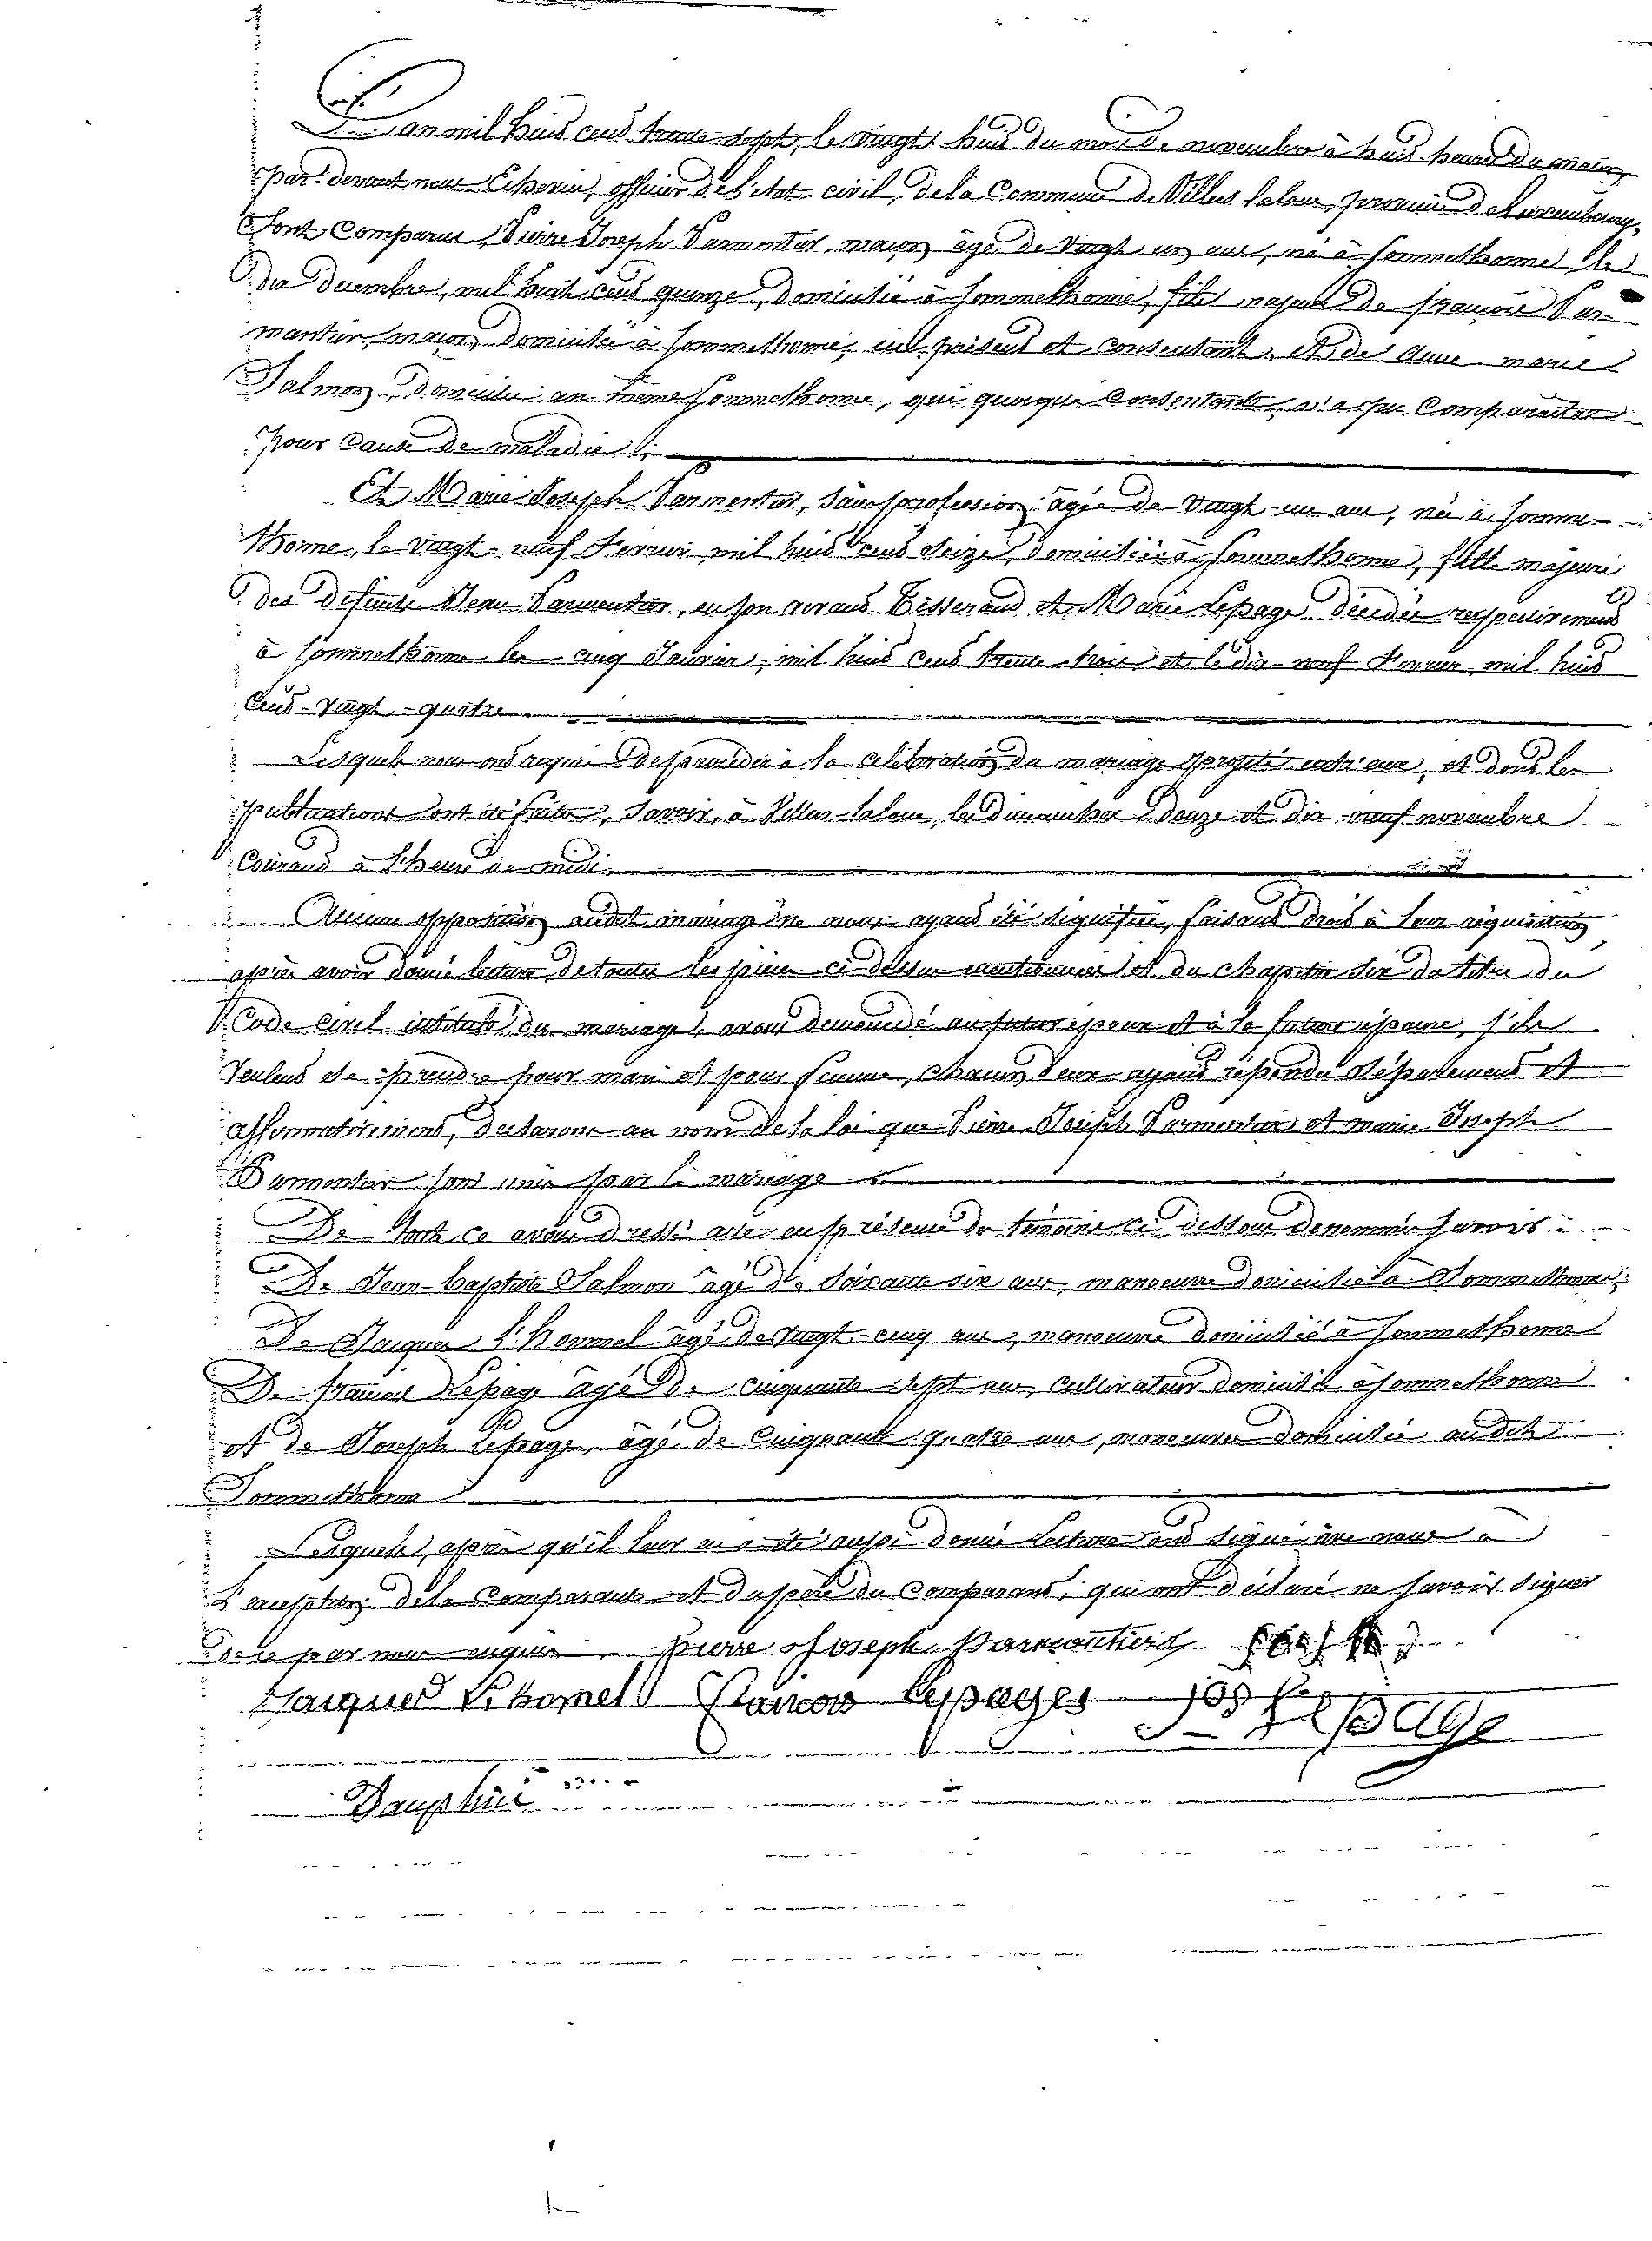 L'an mil huit cent trente-sept, le vingt huit du mois de novembre à huit heures du matin,
par-devant nous Echevin, officier de l'état civil, de la Commune de Villers-laloue, province de Luxembourg,
Sont Comparus, Pierre Joseph Parmentier, maçon, âgé de vingt un ans, né à Sommethonne le
dix décembre, mil huit cent quinze, domicilié à Sommethonne, fils majeur de françois Par-
mantier, maçon, domicilié à Sommethonne, ici présent et consentant, et de Anne marie
Salmon, domiciliée au même Sommethonne, qui quoique Consentante, n'a pu Comparaitre
pour cause de maladie ;
Et Marie Joseph Parmentier, sans profession, âgée de vingt-un ans, née à Somme-
thonne, le vingt-neuf fevrier mil huit cent seize, domiciliée à Sommethonne, fille majeure
des défunts Jean Parmentier, en son vivant Tisserand et Marie Lepage décédés respectivement
à Sommethonne le cinq Janvier, mil huit cent trente trois et le dix-neuf fevrier mil huit
Cent-vingt-quatre.
Lesquels nous ont requis de procéder à la célébration du mariage projeté entr'eux, et dont les
publications ont été faites, savoir, à Villers-laloue, les dimanches douze et dix-neuf novembre
Courant à l'heure de midi.
Aucune opposition audit mariage ne nous ayant été signifiée, faisant droit à leur réquisition
après avoir donné lecture de toutes les pièces ci-dessus mentionnées et du chapitre six du titre du
Code civil intitulé du mariage, avons demandé au futur époux et à la future épouse, s'ils
veulent se prendre pour mari et pour femme, chacun d'eux ayant répondu séparément et
affirmativement, déclarons au nom de la loi que Pierre Joseph Parmentier et marie Joseph
Parmentier sont unis par le mariage
De tout ce avons dressé acte en présence de témoins ci dessous dénommés savoir :
De Jean-baptiste Salmon âgé de soixante six ans, manoeuvre domicilié à Sommethonne,
De Jacques l'hommel âgé de vingt-cinq ans, manoeuvre domicilié à Sommethonne
De françois Lepage âgé de cinquante sept ans, cultivateur domicilié à Sommethonne
et de Joseph Lepage, âgé de Cinquante quatre ans, manoeuvre domicilié audit
Sommethonne
Lesquels, après qu'il leur en a été aussi donné lecture ont signé avec nous à
L'exception de la Comparante et du père du Comparant, qui ont déclaré ne savoir signer
de ce par nous requis. Pierre Joseph Parmentier
Jacques L'homel françois lepages jos Lepage
Dauphin